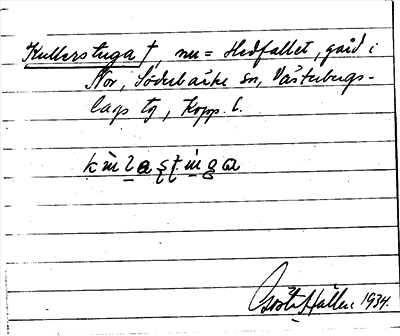 Kullerstuga †, nu = Hedfallet, gård i
Nor, Söderbärke sn, Västerbergs-
lags tg, Kopp. l.
Gösta Hallén 1934.